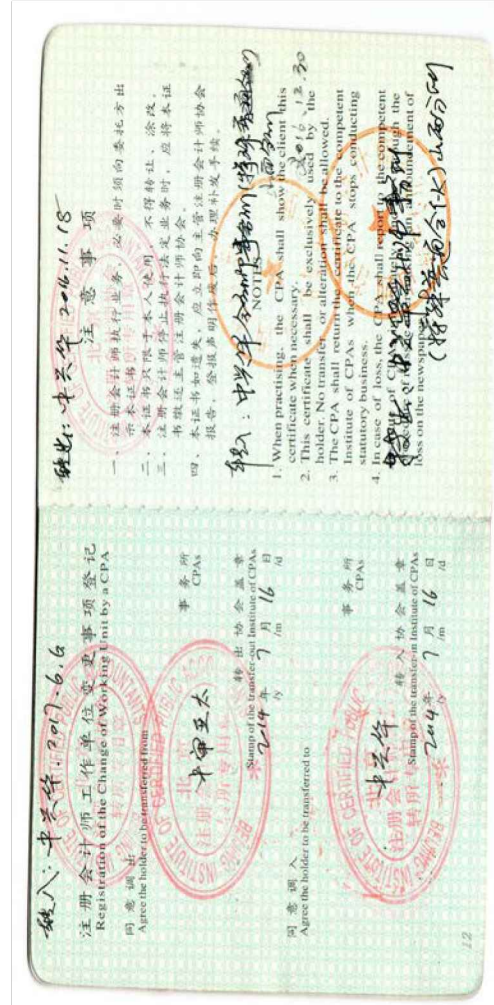 转入：中兴华.2017.6.6
注册会计师工作单位变更事项登记
Registration of the Change of Working Unit by a CPA
同意调出
Agree the holder to be transferred from
中审亚太
事务所
CPAs
转出协会盖章
Stamp of the transfer-out Institute of CPAs
2014年 7月 16日
/y /m /d
同意调入
Agree the holder to be transferred to
中兴华
事务所
CPAs
转入协会盖章
Stamp of the transfer-in Institute of CPAs
2014年 7月 16日
/y /m /d
12
转出：中兴华 2016.11.18
注意事项
一、注册会计师执行业务，必要时须向委托方出
示本证书。
二、本证书只限于本人使用，不得转让、涂改。
三、注册会计师停止执行法定业务时，应将本证
书缴还主管注册会计师协会。
四、本证书如遗失，应立即向主管注册会计师协会
报告，登报声明作废后，办理补发手续。
转入：中兴华会计师事务所(特殊普通合伙)
2016.12.30
NOTES
1. When practising, the CPA shall show the client this
certificate when necessary.
2. This certificate shall be exclusively used by the
holder. No transfer or alteration shall be allowed.
3. The CPA shall return the certificate to the competent
Institute of CPAs when the CPA stops conducting
statutory business.
4. In case of loss, the CPA shall report to the competent
Institute of CPAs through the
loss on the newspaper
(特殊普通合伙)山西分所